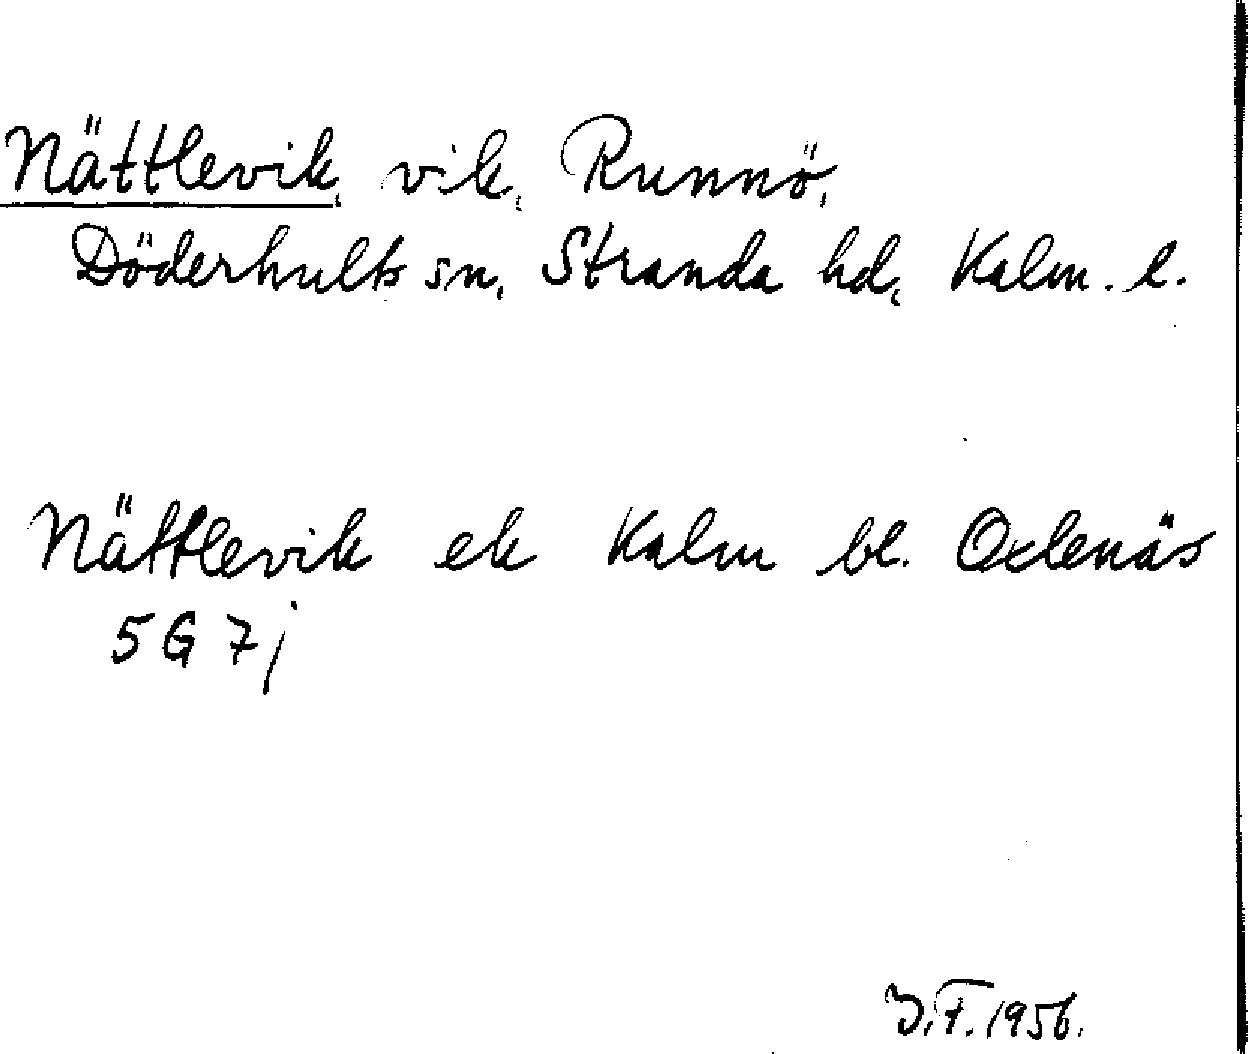 Nättlevik, vik, Runnö,
Döderhults sn, Stranda hd, Kalm. l.
Nättlevik ek Kalm bl. Oxlenäs
5 G 7 j
I.F. 1956.